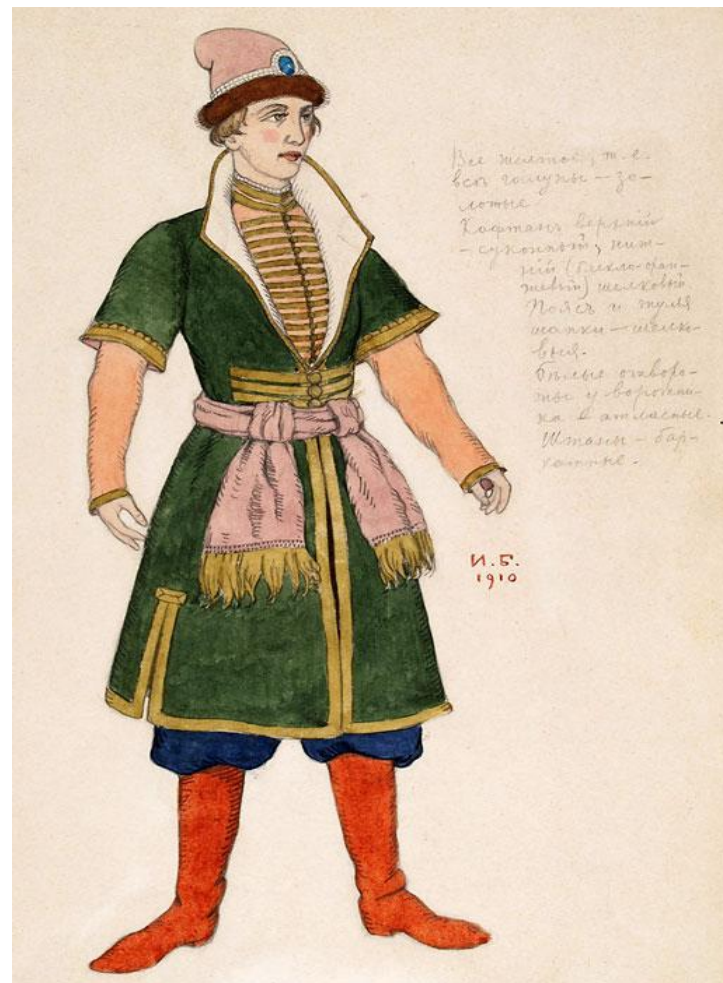 Все желтое, т. е.
все галуны – зо-
лотые.
Кафтанъ верхній
– суконный, ниж-
ній (блекло-оран-
жевый) шелковый
Поясъ и тулья
шапки – шелко-
выя.
Бѣлые отворо-
ты у воротни-
ка – атласные.
Штаны – бар-
хатные.
И. Б.
1910